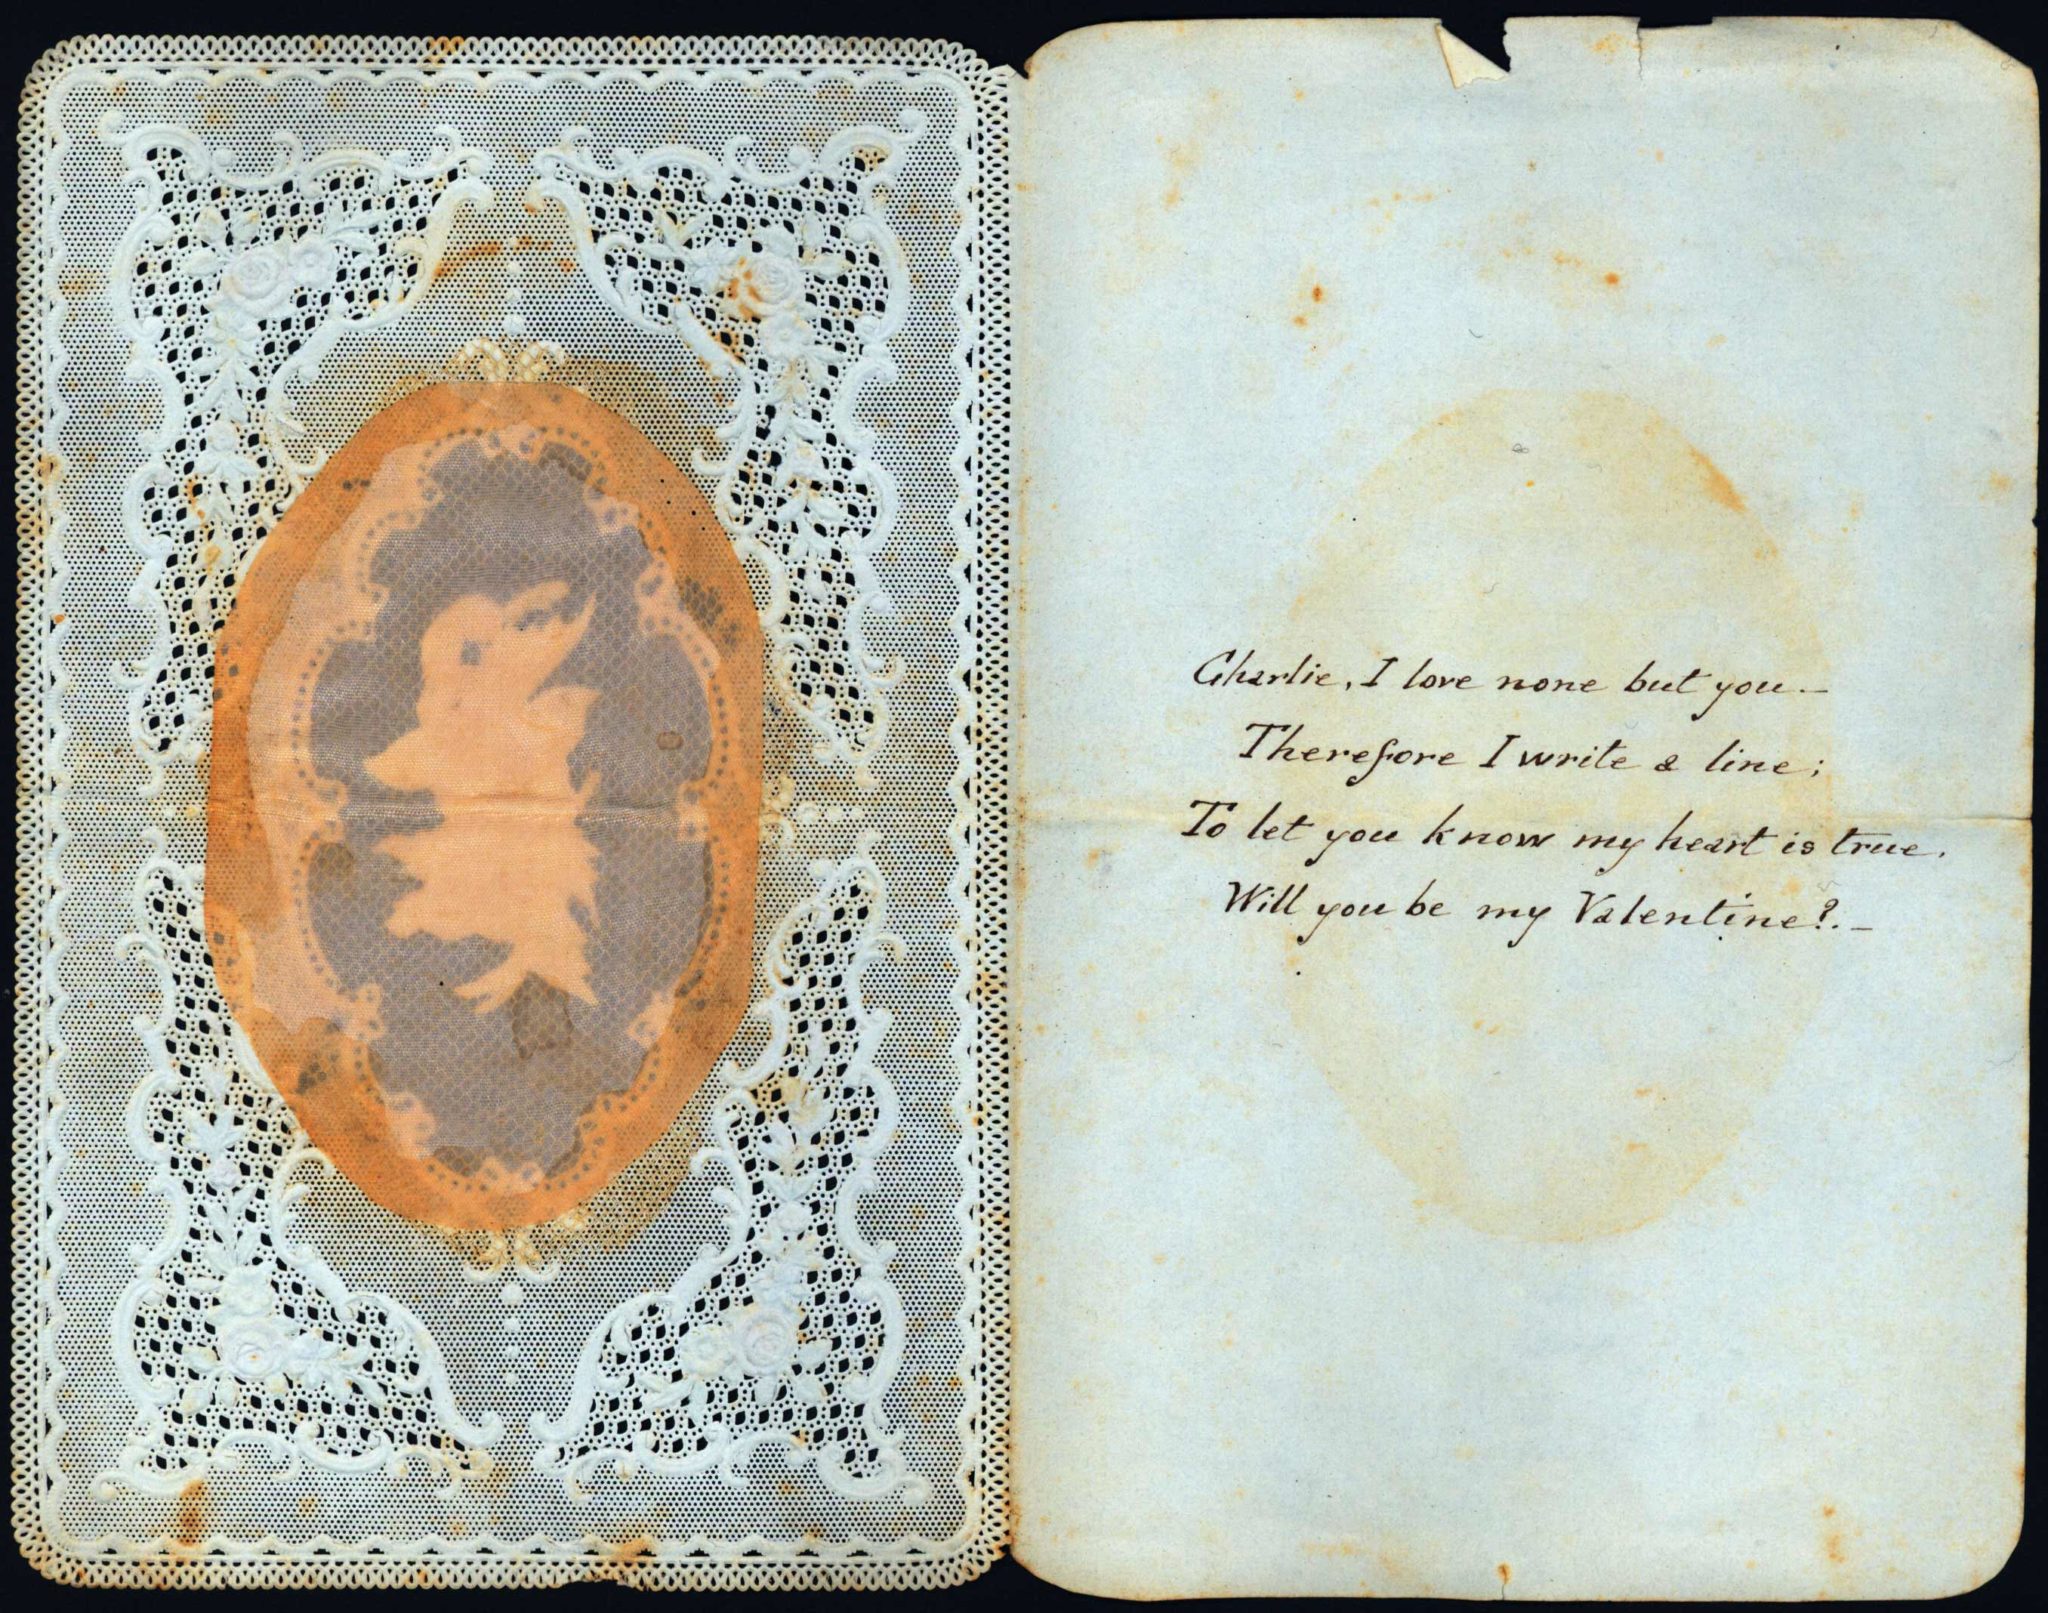 Charlie, I love none but you.—
Therefore I write a line;
To let you know my heart is true.
Will you be my Valentine?.—